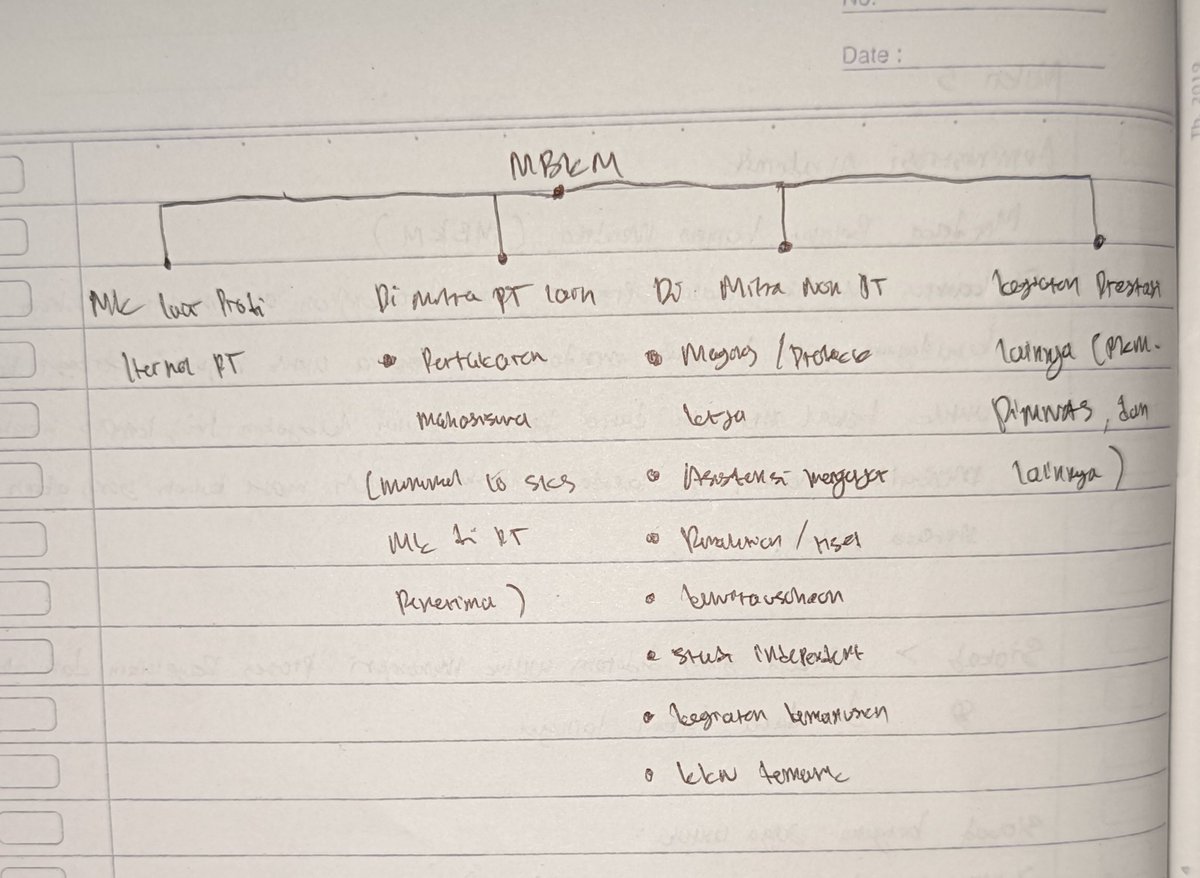 No.
Date :
MBKM
MK luar Prodi
Iternal PT
Di mitra PT lain
• Pertukaran
mahasiswa
(minimal 10 sks
MK di PT
Penerima)
Di Mitra Non PT
• Magang / Praktek
kerja
• Asistensi mengajar
• Penelitian / riset
• kewirausahaan
• Studi independent
• kegiatan kemanusian
• kkn tematik
kegiatan Prestasi
lainnya (PKM.
PIMNAS, dan
lainnya)